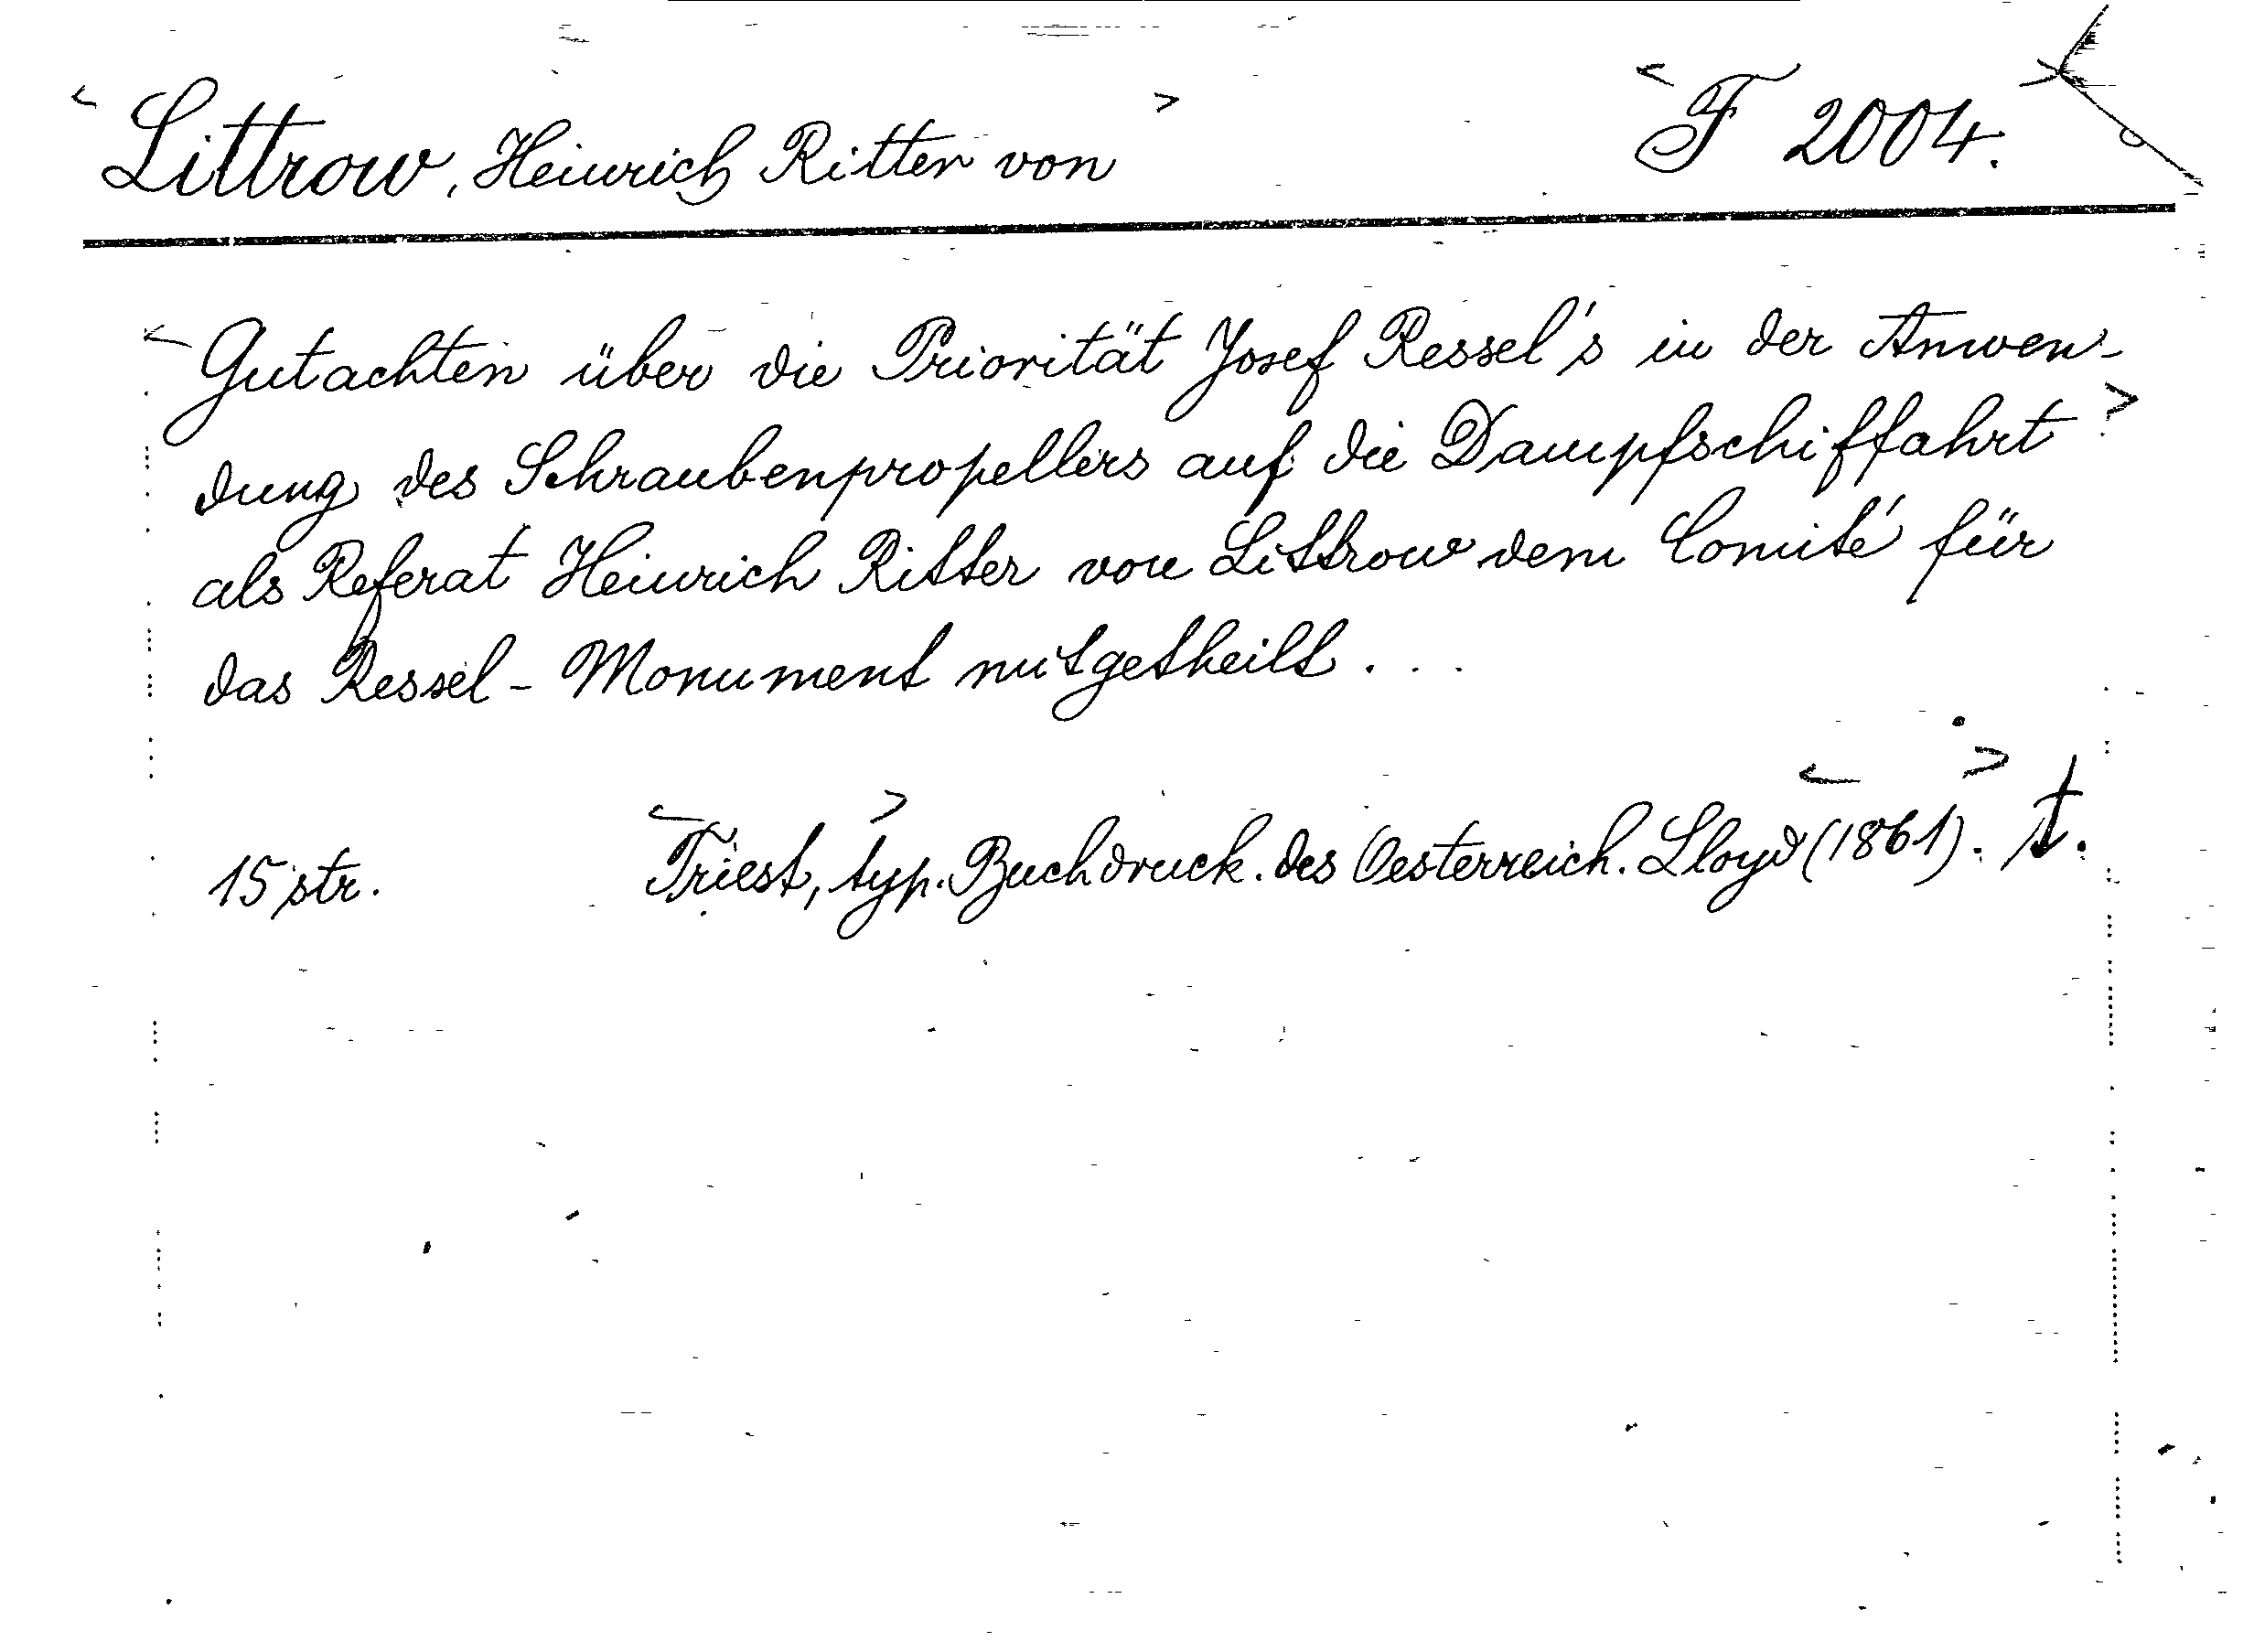 <Littrow, Heinrich Ritter von> <F 2004.>
<Gutachten über die Priorität Josef Ressel's in der Anwen-
dung des Schraubenpropellers auf die Dampfschiffahrt>
als Referat Heinrich Ritter von Littrow dem Comité für
das Ressel-Monument mitgetheilt...
15 str. <Triest,> typ. Buchdruck. des Oesterreich. Lloyd <(1861)>.